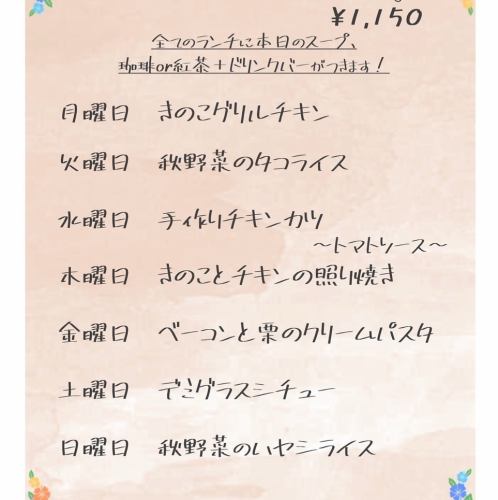 ¥1,150
全てのランチに本日のスープ、
珈琲or紅茶+ドリンクバーがつきます!
月曜日 きのこグリルチキン
火曜日 秋野菜のタコライス
水曜日 手作りチキンカツ
~トマトソース~
木曜日 きのことチキンの照り焼き
金曜日 ベーコンと栗のクリームパスタ
土曜日 デミグラスシチュー
日曜日 秋野菜のハヤシライス